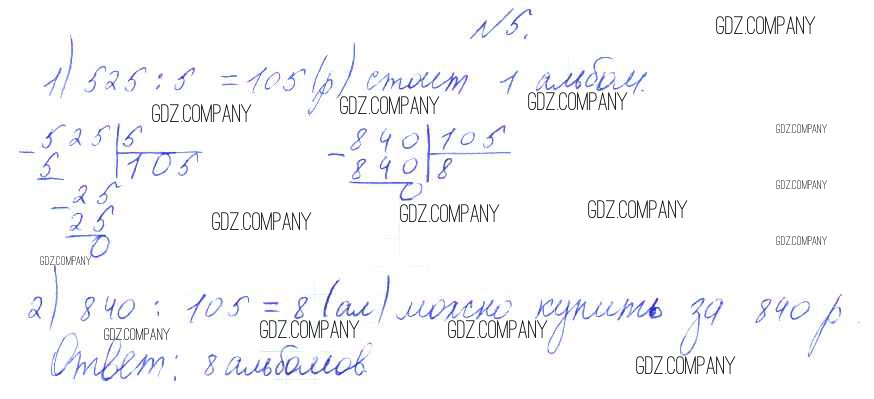 №5.
GDZ.COMPANY
1) 525 : 5 = 105 (р) стоит 1 альбом.
GDZ.COMPANY GDZ.COMPANY GDZ.COMPANY
− 525 | 5 − 840 | 105
GDZ.COMPANY
5 | 105 840 | 8
0
GDZ.COMPANY
− 25
25
GDZ.COMPANY GDZ.COMPANY GDZ.COMPANY
0
GDZ.COMPANY
GDZ.COMPANY
2) 840 : 105 = 8 (ал) можно купить за 840 р.
GDZ.COMPANY GDZ.COMPANY GDZ.COMPANY
Ответ: 8 альбомов
GDZ.COMPANY